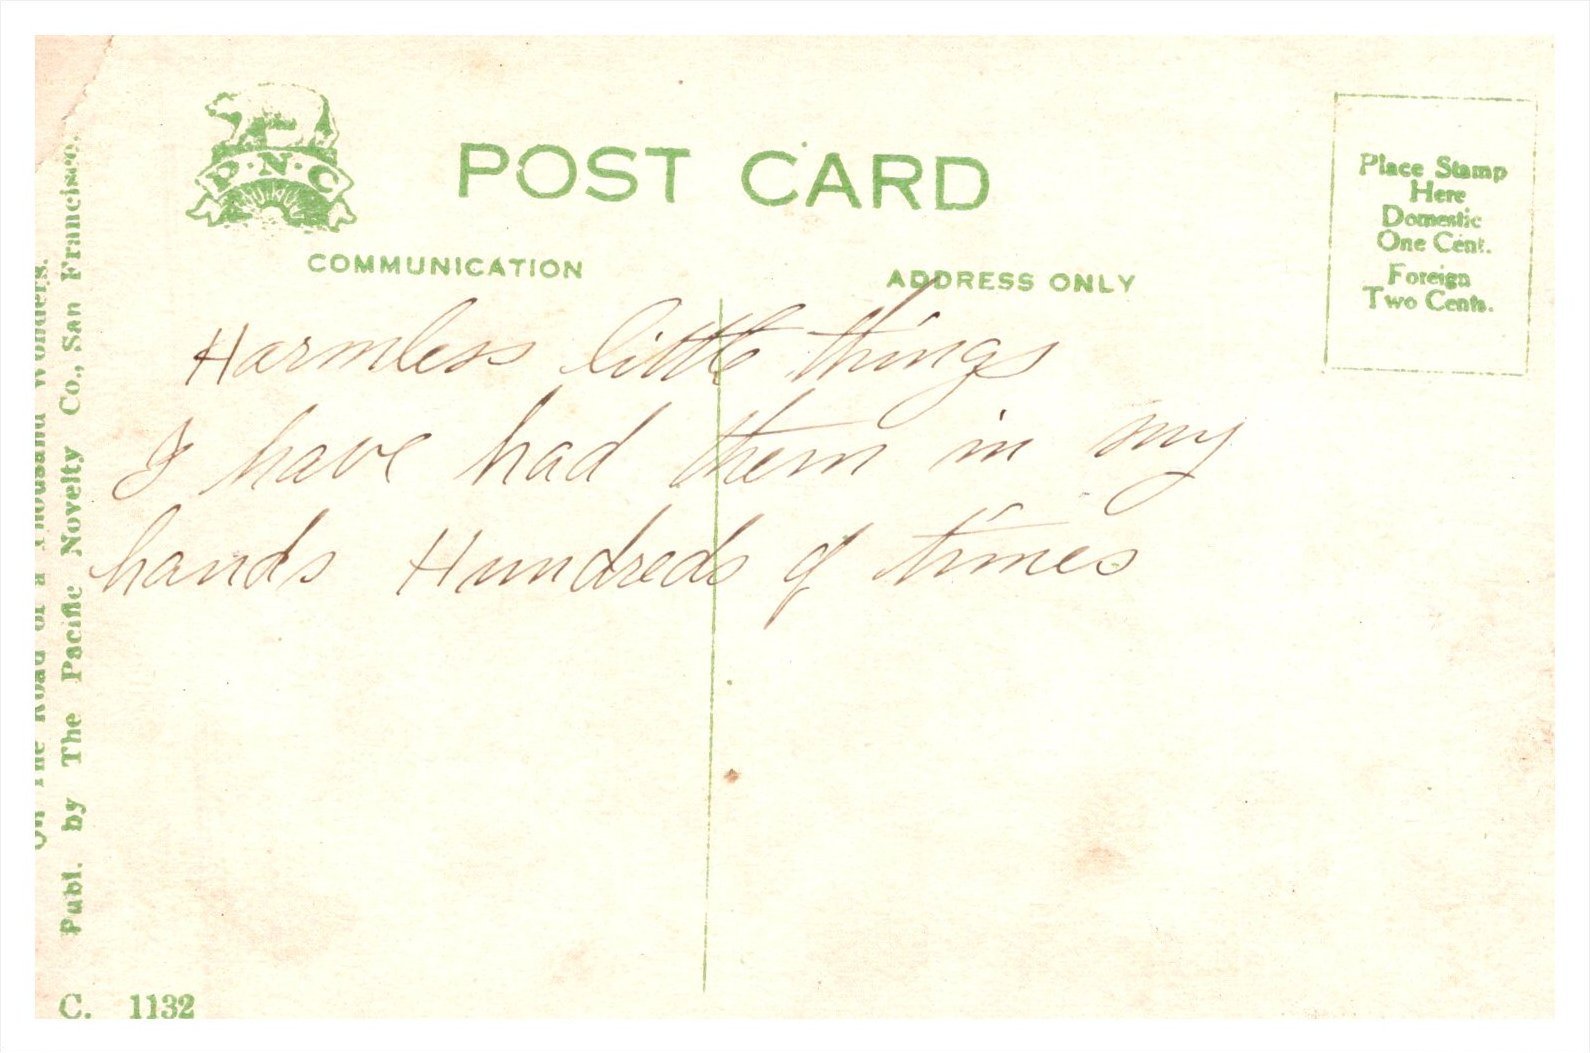 P·N·C
POST CARD
COMMUNICATION
ADDRESS ONLY
Place Stamp
Here
Domestic
One Cent.
Foreign
Two Cents.
Harmless little things
I have had them in my
hands Hundreds of times
On The Road of a Thousand Wonders.
Publ. by The Pacific Novelty Co., San Francisco,
C. 1132